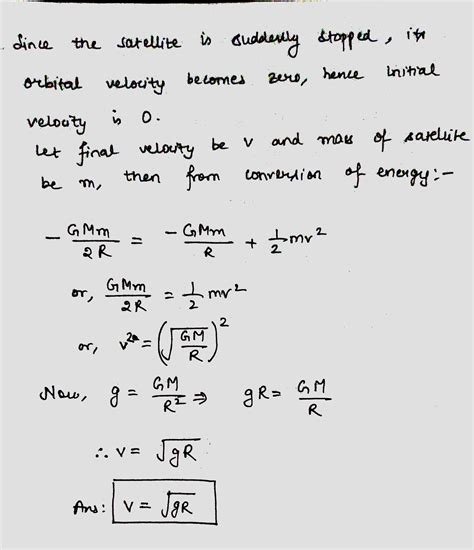 Since the satellite is suddenly stopped, its
orbital velocity becomes zero, hence initial
velocity is 0.
Let final velocity be v and mass of satellite
be m, then from conversion of energy:-
- GMm/2R = - GMm/R + 1/2 mv²
or, GMm/2R = 1/2 mv²
or, v² = (√GM/R)²
Now, g = GM/R² ⇒ gR = GM/R
∴ v = √gR
Ans: v = √gR